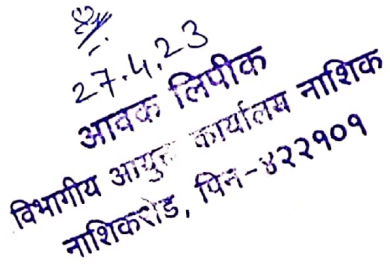 27.4.23
आवक लिपीक
विभागीय आयुक्त कार्यालय नाशिक
नाशिकरोड, पिन-४२२१०१